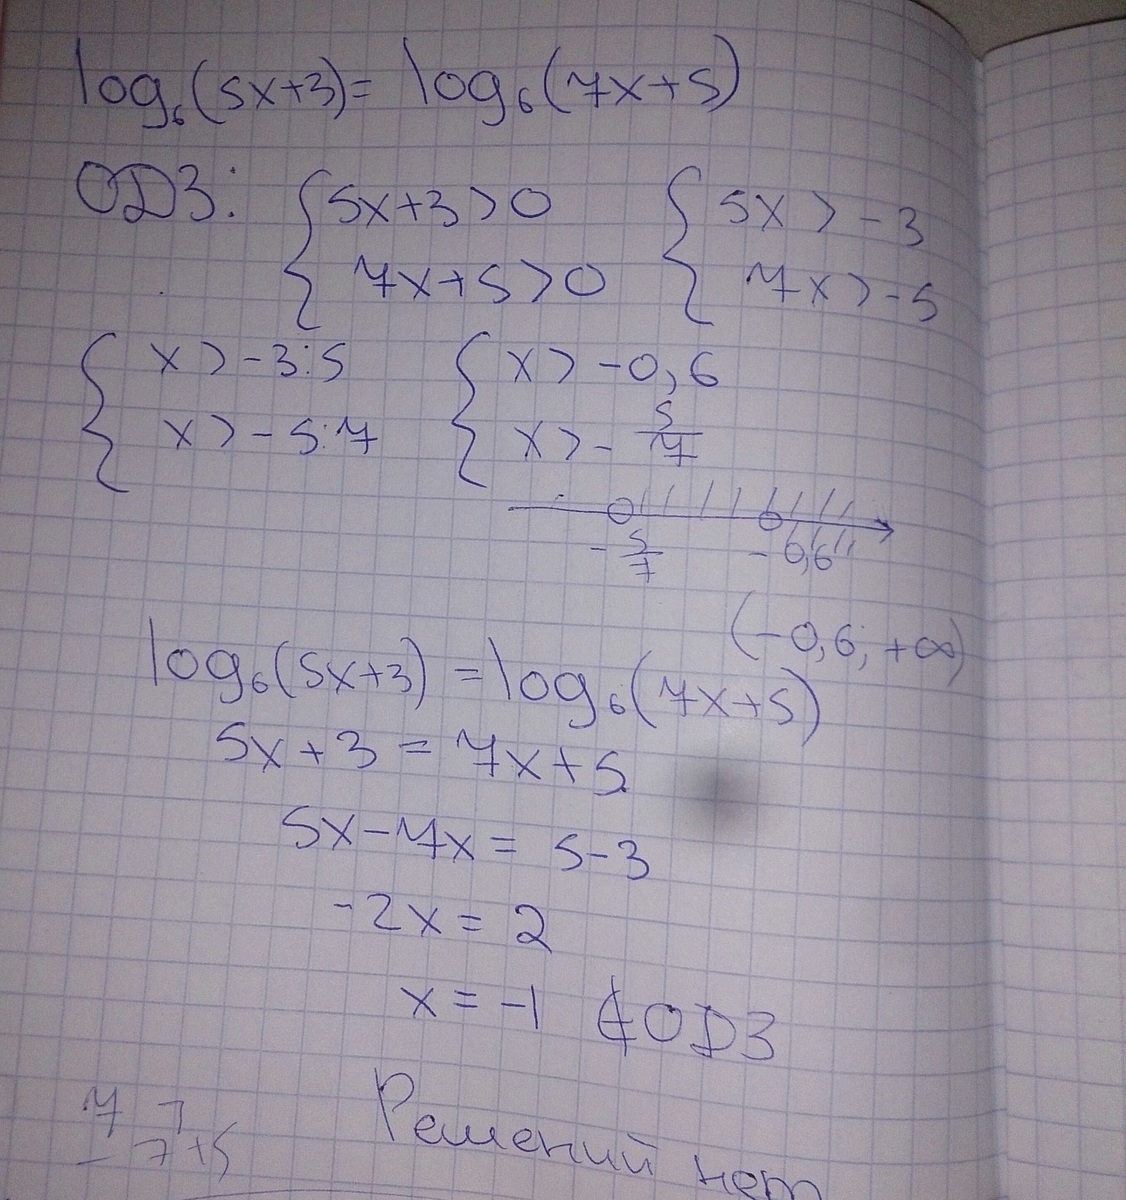 log₆(5x+3) = log₆(7x+5)
ОДЗ: { 5x+3>0 { 5x > -3
7x+5>0 7x > -5
{ x > -3:5 { x > -0,6
x > -5:7 x > - 5/7
- 5/7 -0,6
(-0,6; +∞)
log₆(5x+3) = log₆(7x+5)
5x+3 = 7x+5
5x-7x = 5-3
-2x = 2
x = -1 ∉ ОДЗ
Решений нет